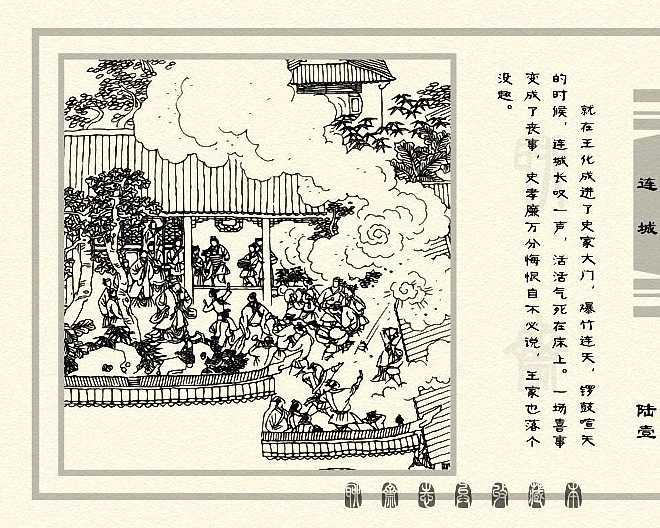 就在王化成进了史家大门，爆竹连天，锣鼓喧天
的时候，连城长叹一声，活活气死在床上。一场喜事
变成了丧事，史孝廉万分悔恨自不必说，王家也落个
没趣。
连城
陆壹